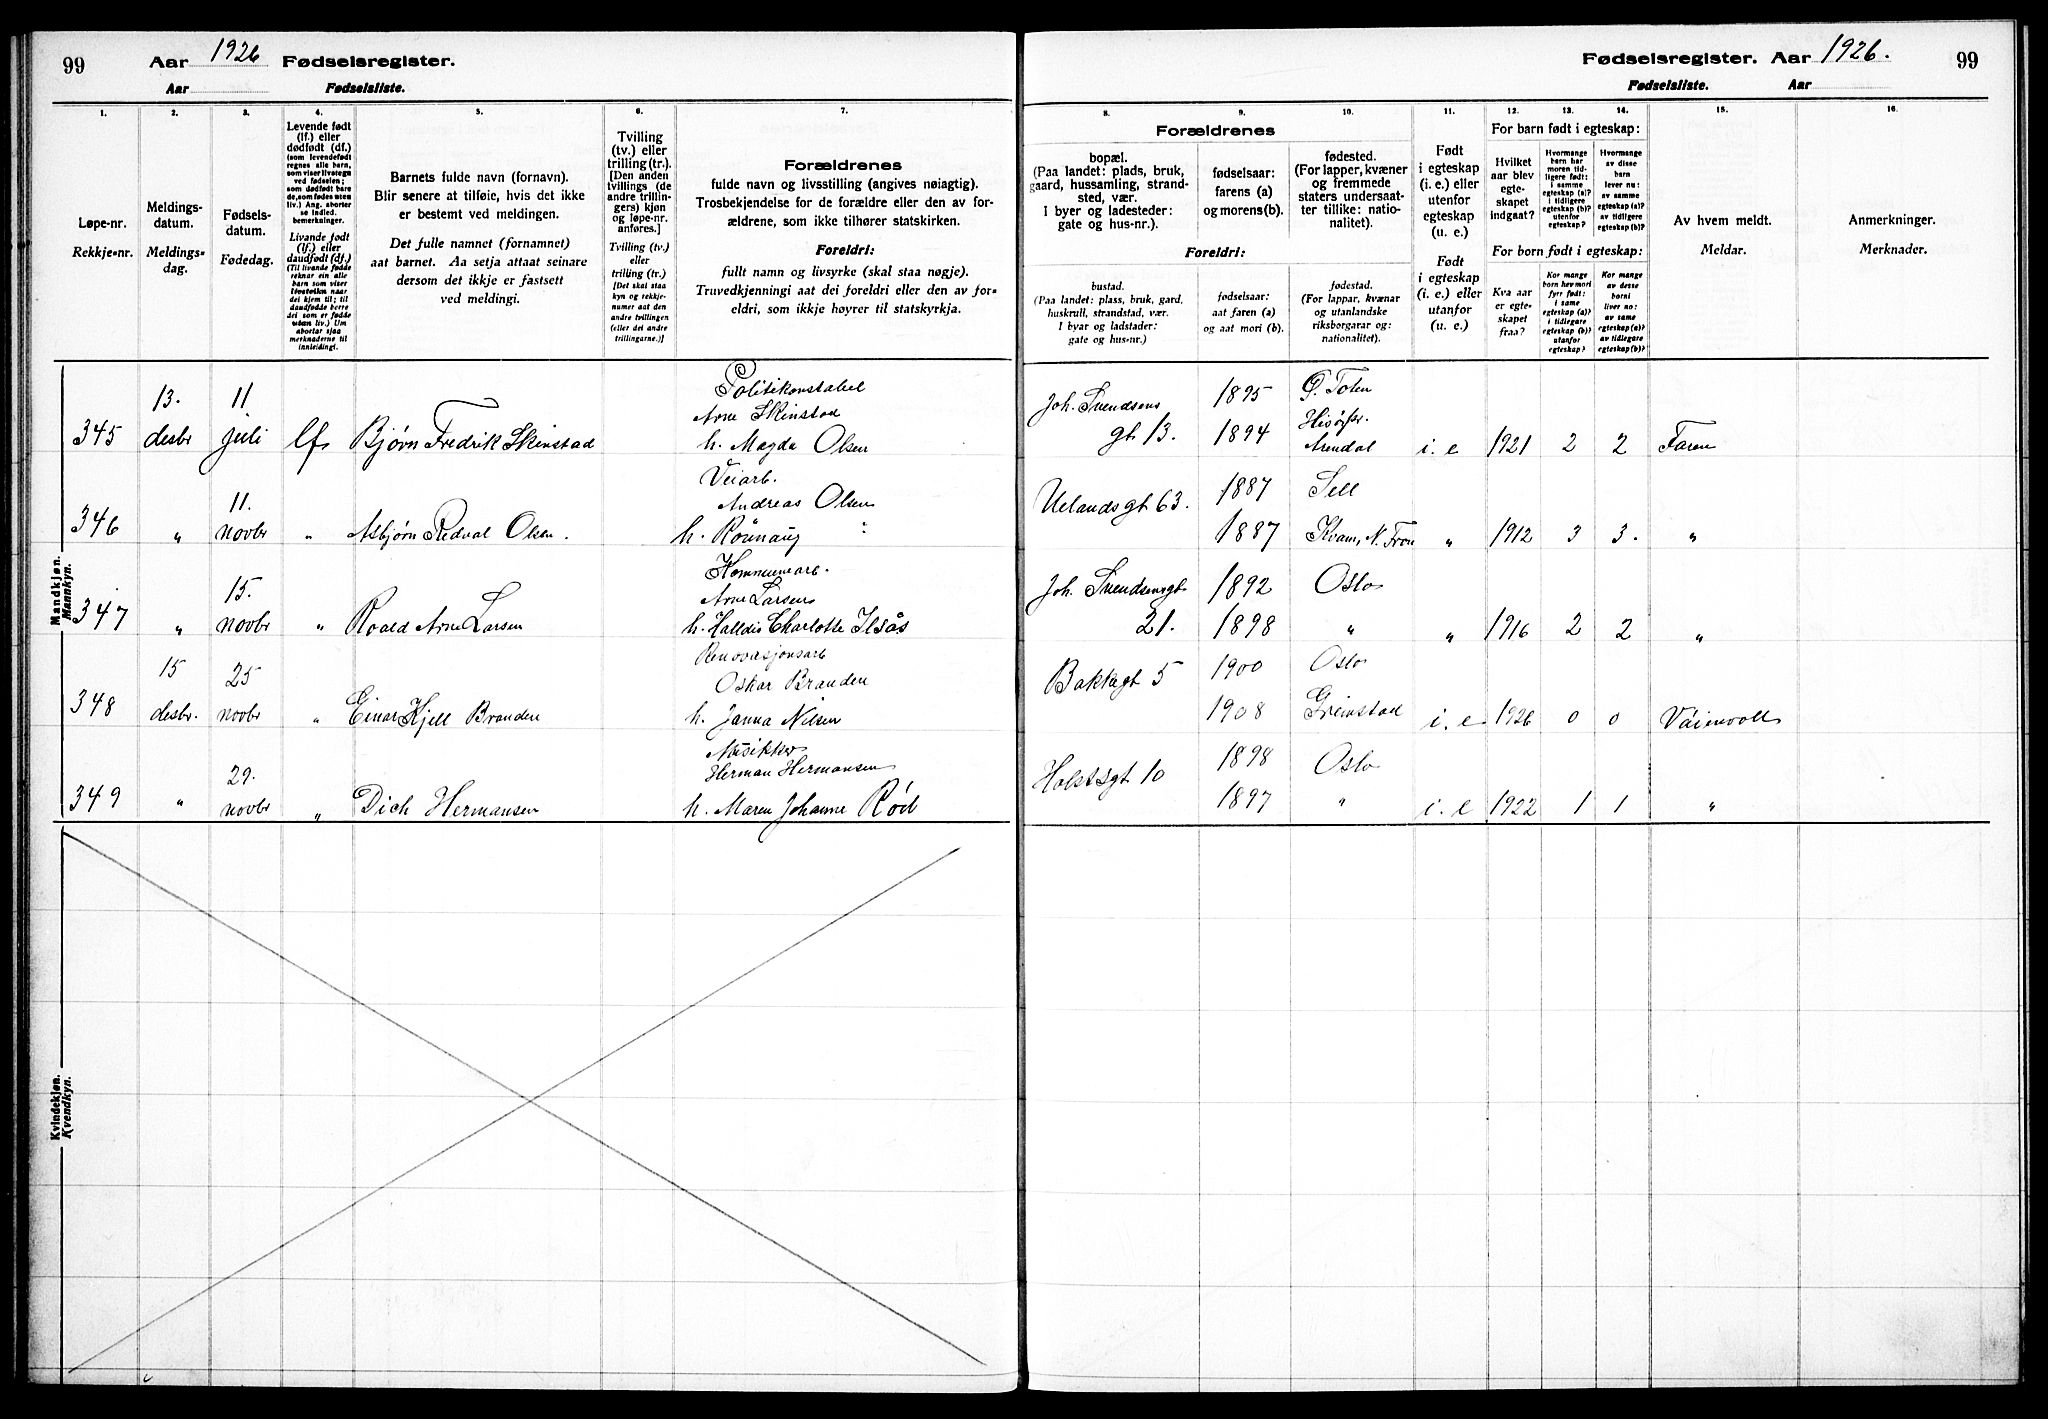 99
Aar 1926 Fødselsregister.
Aar Fødselsliste.
Fødselsregister. Aar 1926.
Fødselsliste. Aar
99
1.
Løpe-nr.
Rekkje-nr.
2.
Meldings-
datum.
Meldings-
dag.
3.
Fødsels-
datum.
Fødedag.
4.
Levende født
(lf.) eller
dødfødt (df.)
(som levendefødt
regnes alle barn,
som viser livstegn
ved fødselen;
som dødfødt bare
de, som fødes uten
liv.) Ang. aborter
se indled.
bemerkninger.
Livande født
(lf.) eller
daudfødt (df.)
(Til livande fødde
reknar ein alle
barn som viser
livsteikn naar
dei kjem til; til
daudfødde berre
dei som er fødde
utan liv.) Um
abortar sjaa
merknaderne til
innleidingi.
5.
Barnets fulde navn (fornavn).
Blir senere at tilføie, hvis det ikke
er bestemt ved meldingen.
Det fulle namnet (fornamnet)
aat barnet. Aa setja attaat seinare
dersom det ikkje er fastsett
ved meldingi.
6.
Tvilling
(tv.) eller
trilling (tr.).
[Den anden
tvillings (de
andre trillin-
gers) kjøn
og løpe-nr.
anføres.]
Tvilling (tv.)
eller
trilling (tr.)
[Det skal staa
kyn og rekkje-
numer aat den
andre tvillingen
(eller dei andre
trillingarne.)]
7.
Forældrenes
fulde navn og livsstilling (angives nøiagtig).
Trosbekjendelse for de forældre eller den av for-
ældrene, som ikke tilhører statskirken.
Foreldri:
fullt namn og livsyrke (skal staa nøgje).
Truvedkjenningi aat dei foreldri eller den av for-
eldri, som ikkje høyrer til statskyrkja.
Forældrenes
8.
bopæl.
(Paa landet: plads, bruk,
gaard, hussamling, strand-
sted, vær.
I byer og ladesteder:
gate og hus-nr.).
9.
fødselsaar:
farens (a)
og morens (b).
10.
fødested.
(For lapper, kvæner
og fremmede
staters undersaat-
ter tillike: natio-
nalitet).
Foreldri:
bustad.
(Paa landet: plass, bruk, gard,
huskrull, strandstad, vær.
I byar og ladstader:
gate og hus-nr.)
fødselsaar:
aat faren (a)
og aat mori (b).
fødestad.
(For lappar, kvænar
og utanlandske
riksborgarar og:
nationalitet).
11.
Født
i egteskap
(i. e.) eller
utenfor
egteskap
(u. e.)
Født
i egteskap
(i. e.) eller
utanfor
(u. e.)
For barn født i egteskap:
12.
Hvilket
aar blev
egte-
skapet
indgaat?
13.
Hvormange
barn har
moren tid-
ligere født:
i samme
egteskap (a)?
i tidligere
egteskap (b)?
utenfor
egteskap?
14.
Hvormange
av disse
barn
lever nu:
av samme
egteskap (a)?
av tidligere
egteskap (b)?
For born født i egteskap:
Kva aar
er egte-
skapet
fraa?
Kor mange
born hev mori
fyrr født:
i same
egteskap (a)?
i tidlegare
egteskap (b)?
utanfor
egteskap?
Kor mange
av desse
borni
liver no:
av same
egteskap (a)?
av tidlegare
egteskap (b)?
15.
Av hvem meldt.
Meldar.
16.
Anmerkninger.
Merknader.
Mandkjøn.
Mannkyn.
345 13. desbr 11 juli lf Bjørn Fredrik Skinstad Politikonstabel
Arne Skinstad
h. Magda Olsen
Joh. Svendsens
gt 13. 1895 Ø. Toten
1894 Hisø pr.
Arendal i. e 1921 2 2 Faren
346 " 11. novbr " Asbjørn Redval Olsen. Veiarb.
Andreas Olsen
h. Rönnaug "
Uelandsgt 63. 1887 Sell
1887 Kvam, N. Fron " 1912 3 3. "
347 " 15. novbr " Roald Arne Larsen Kommunearb.
Arne Larsen
h. Halldis Charlotte Ilsås
Joh. Svendsensgt
21. 1892 Oslo
1898 " " 1916 2 2 "
348 15 desbr. 25 novbr " Einar Kjell Branden Renovasjonsarb
Oskar Branden
h. Janna Nilsen
Bakkegt 5 1900 Oslo
1908 Grimstad i. e 1926 0 0
349 " 29. novbr " Dich Hermansen Musikker
Herman Hermansen
h. Maren Johanne Rød
Holstsgt 10 1898 Oslo
1897 " i. e 1922 1 1 "
Kvindekjøn.
Kvendkyn.